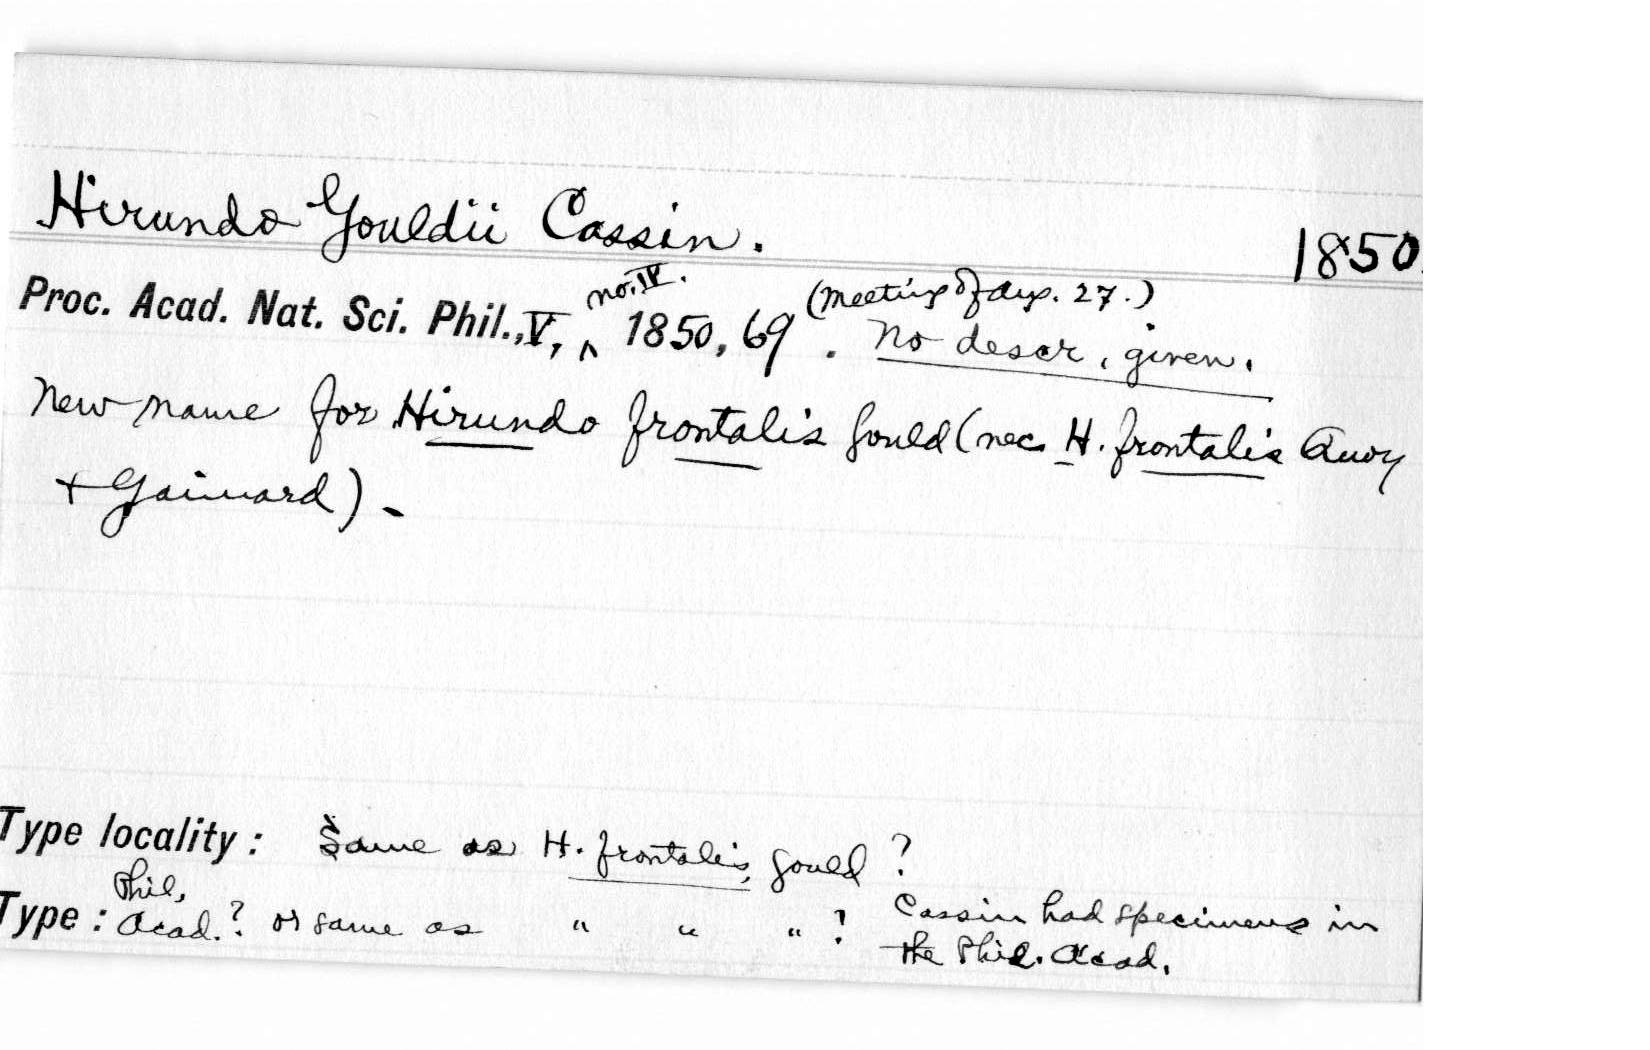 Hirundo Gouldii Cassin.
1850.
Proc. Acad. Nat. Sci. Phil., V, ^ no. IV. 1850, 69. (Meeting of Aug. 27.) No descr. given.
New name for Hirundo frontalis Gould (nec H. frontalis Quoy
+ Gaimard).
Type locality: Same as H. frontalis, Gould?
Type: Phil. Acad.? or same as " " " ? Cassin had specimens in
the Phil. Acad.